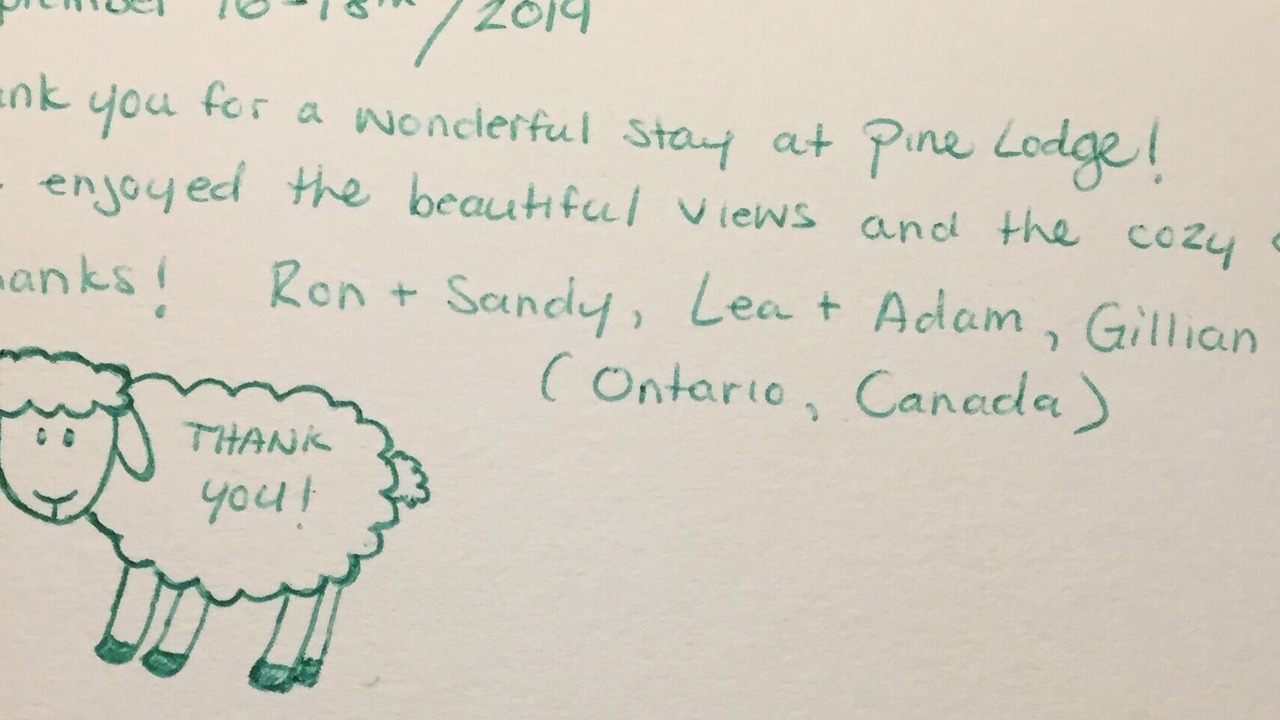 16-18th/2019
you for a wonderful stay at Pine Lodge!
enjoyed the beautiful views and the cozy
Ron + Sandy, Lea + Adam, Gillian
(Ontario, Canada)
THANK
you!